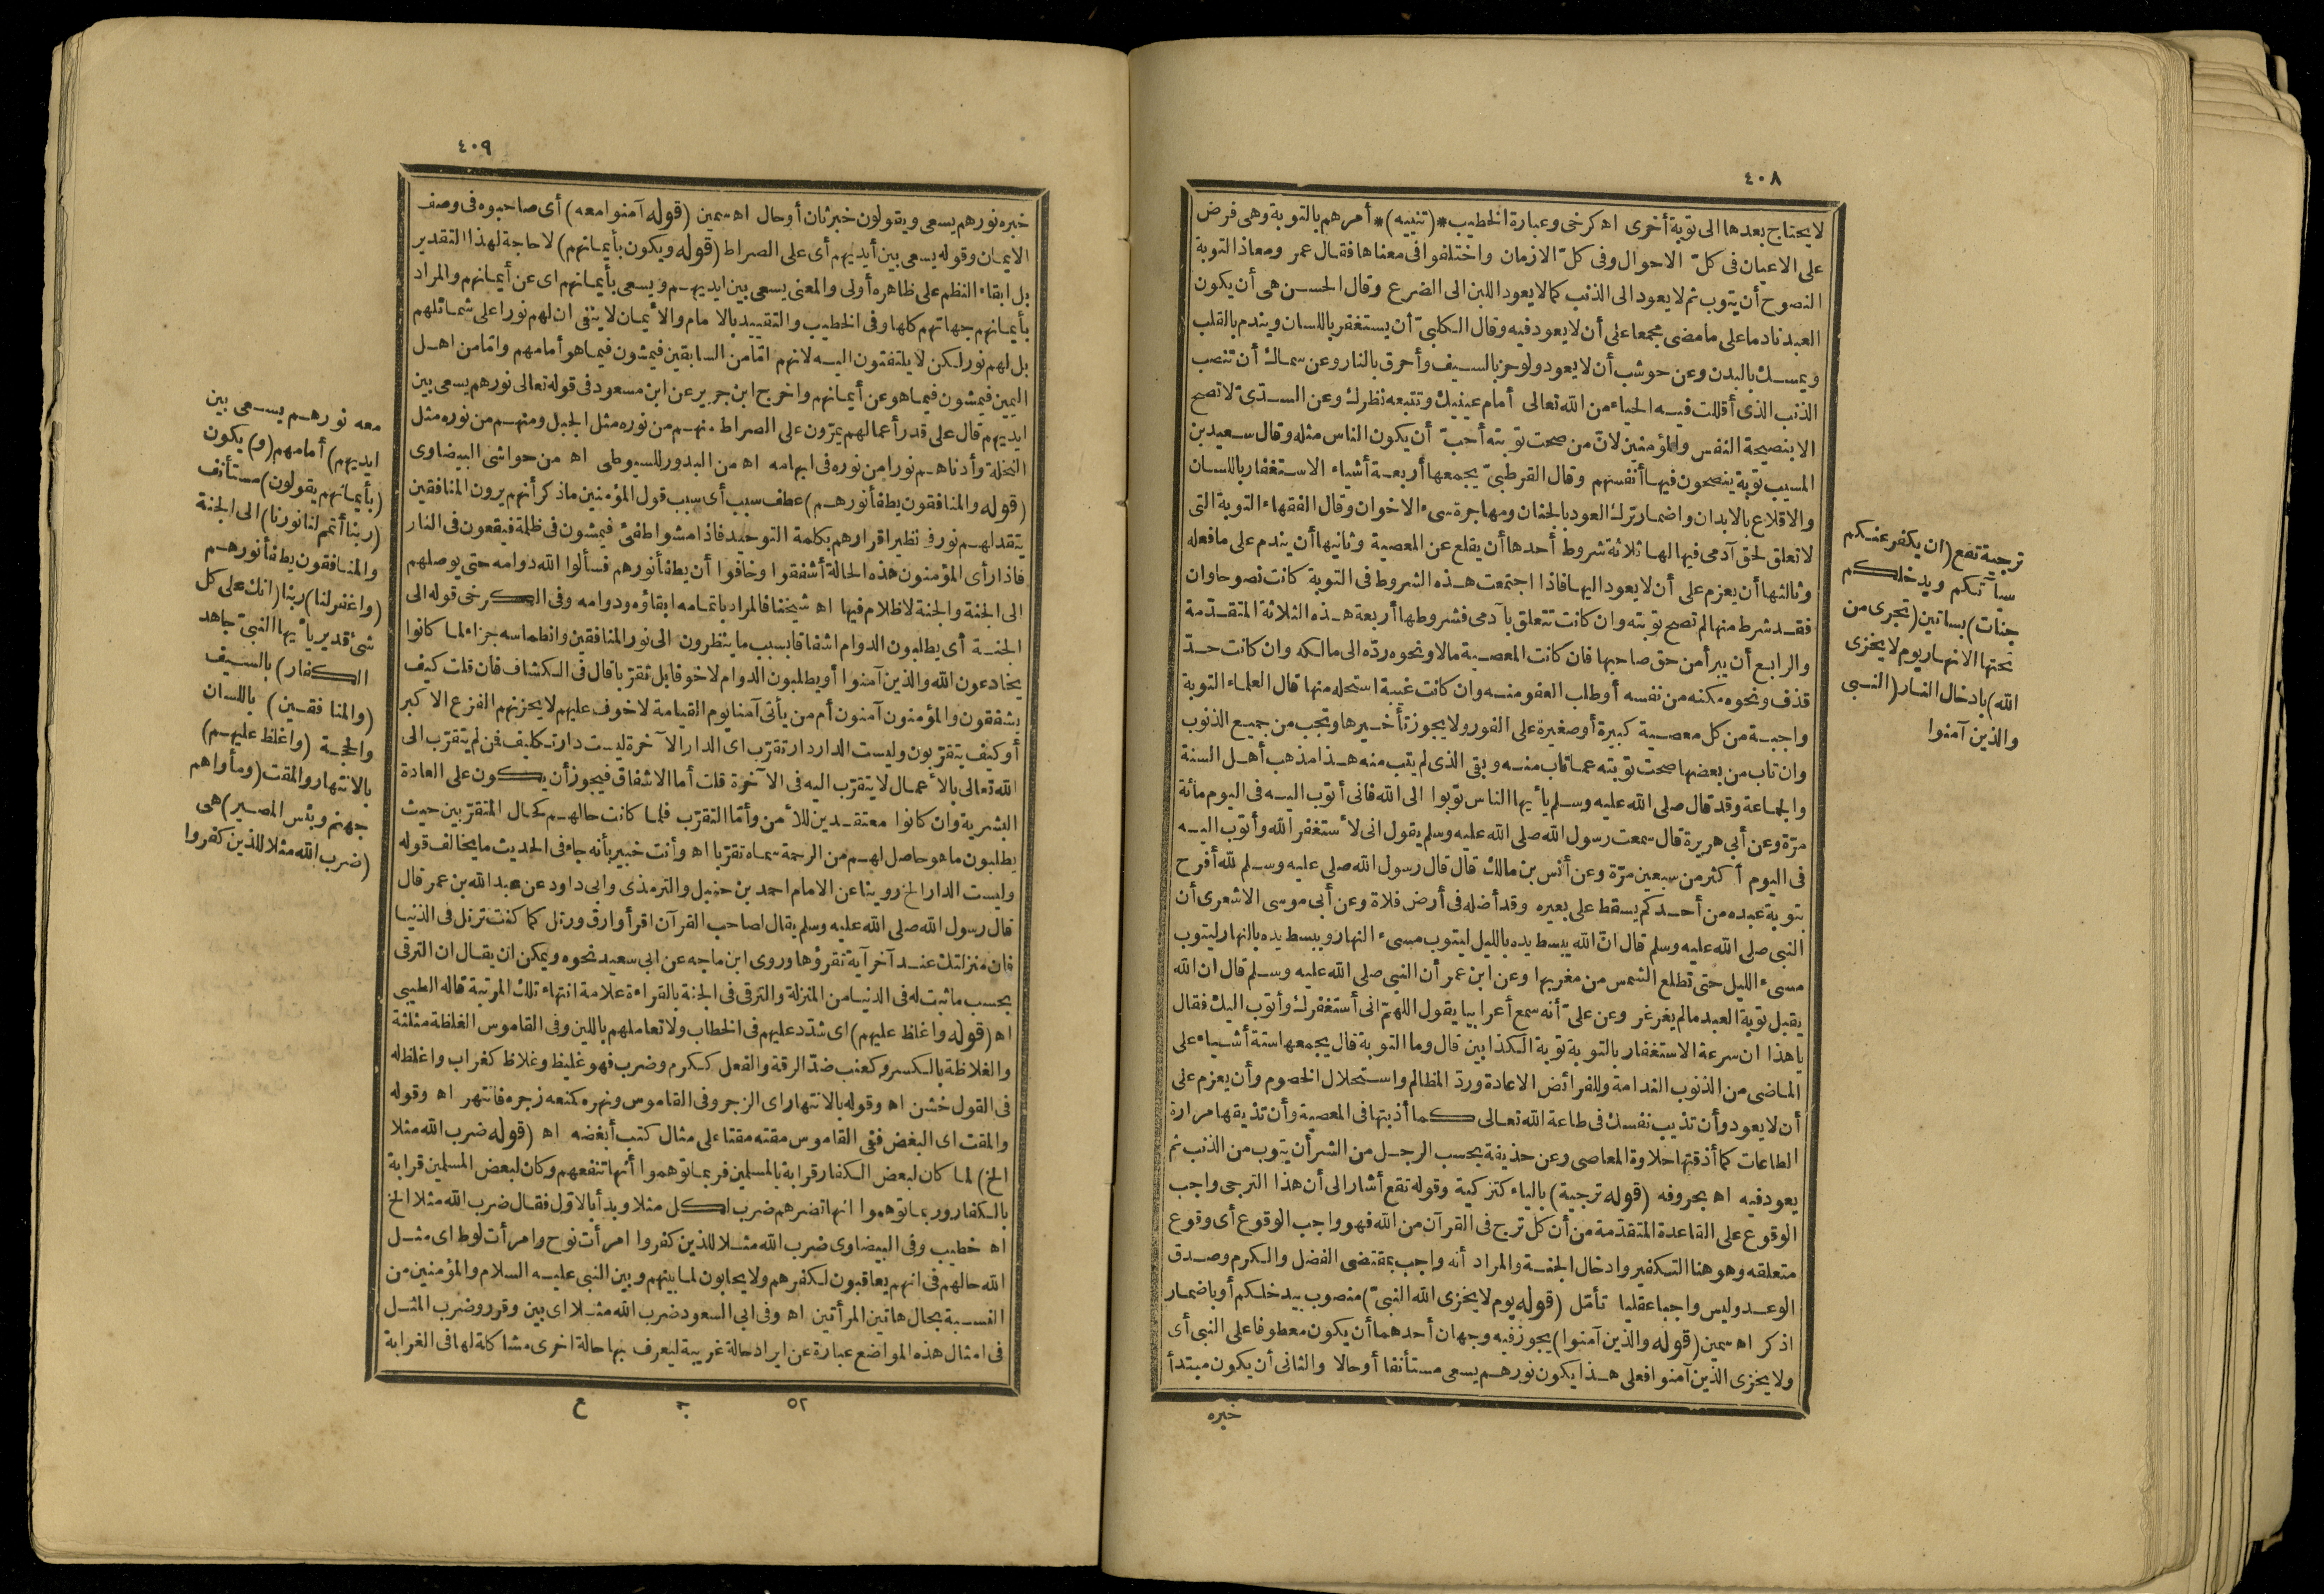 ٤٠٨
لا يحتاج بعدها الى توبة أخرى اه كرخى وعبارة الخطيب *(تنبيه)* أمرهم بالتوبة وهى فرض
على الاعيان فى كلّ الاحوال وفى كلّ الازمان واختلفوا فى معناها فقال عمر ومعاذ التوبة
النصوح أن يتوب ثم لا يعود الى الذنب كما لا يعود اللبن الى الضرع وقال الحسن هى أن يكون
العبد نادما على ما مضى مجمعا على أن لا يعود فيه وقال الكلبىّ أن يستغفر باللسان ويندم بالقلب
ويمسك بالبدن وعن حوشب أن لا يعود ولو حز بالسيف وأحرق بالنار وعن سماك أن تنصب
الذنب الذى أقللت فيه الحياء من الله تعالى أمام عينيك وتتبعه نظرك وعن السدّى لا تصح
الا بنصيحة النفس والمؤمنين لانّ من صحت توبته أحبّ أن يكون الناس مثله وقال سعيد بن
المسيب توبة ينصحون فيها أنفسهم وقال القرطبىّ يجمعها أربعة أشياء الاستغفار باللسان
والاقلاع بالابدان واضمار ترك العود بالجنان ومهاجرة سىء الاخوان وقال الفقهاء التوبة التى
لا تعلق لحق آدمى فيها لها ثلاثة شروط أحدها أن يقلع عن المعصية وثانيها أن يندم على ما فعله
وثالثها أن يعزم على أن لا يعود اليها فاذا اجتمعت هذه الشروط فى التوبة كانت نصوحا وان
فقد شرط منها لم تصح توبته وان كانت تتعلق بآدمى فشروطها أربعة هذه الثلاثة المتقدّمة
والرابع أن يبرأ من حق صاحبها فان كانت المعصية مالا ونحوه ردّه الى مالكه وان كانت حدّ
قذف ونحوه مكنه من نفسه أو طلب العفو منه وان كانت غيبة استحله منها قال العلماء التوبة
واجبة من كل معصية كبيرة أو صغيرة على الفور ولا يجوز تأخيرها وتجب من جميع الذنوب
وان تاب من بعضها صحت توبته عما تاب منه وبقى الذى لم يتب منه هذا مذهب أهل السنة
والجماعة وقد قال صلى الله عليه وسلم يا أيها الناس توبوا الى الله فانى أتوب اليه فى اليوم مائة
مرّة وعن أبى هريرة قال سمعت رسول الله صلى الله عليه وسلم يقول انى لأستغفر الله وأتوب اليه
فى اليوم أكثر من سبعين مرّة وعن أنس بن مالك قال قال رسول الله صلى عليه وسلم لله أفرح
بتوبة عبده من أحدكم يسقط على بعيره وقد أضله فى أرض فلاة وعن أبى موسى الاشعرى أن
النبى صلى الله عليه وسلم قال انّ الله يبسط يده بالليل ليتوب مسىء النهار ويبسط يده بالنهار ليتوب
مسىء الليل حتى تطلع الشمس من مغربها وعن ابن عمر أن النبى صلى الله عليه وسلم قال ان الله
يقبل توبة العبد ما لم يغرغر وعن علىّ أنه سمع أعرابيا يقول اللهمّ انى أستغفرك وأتوب اليك فقال
يا هذا ان سرعة الاستغفار بالتوبة توبة الكذابين قال وما التوبة قال يجمعها ستة أشياء على
الماضى من الذنوب الندامة وللفرائض الاعادة وردّ المظالم واستحلال الخصوم وأن يعزم على
أن لا يعود وأن تذيب نفسك فى طاعة الله تعالى كما أذبتها فى المعصية وأن تذيقها مرارة
الطاعات كما أذقتها حلاوة المعاصى وعن حذيفة بحسب الرجل من الشر أن يتوب من الذنب ثم
يعود فيه اه بحروفه (قوله ترجية) بالياء كتزكية وقوله تقع أشار الى أن هذا الترجى واجب
الوقوع على القاعدة المتقدّمة من أن كل ترج فى القرآن من الله فهو واجب الوقوع أى وقوع
متعلقه وهو هنا التكفير وادخال الجنة والمراد أنه واجب بمقتضى الفضل والكرم وصدق
الوعد وليس واجبا عقليا تأمّل (قوله يوم لا يخزى الله النبىّ) منصوب بيدخلكم أو باضمار
اذكر اه سمين (قوله والذين آمنوا) يجوز فيه وجهان أحدهما أن يكون معطوفا على النبى أى
ولا يخزى الذين آمنوا فعلى هذا يكون نورهم يسعى مستأنفا أو حالا والثانى أن يكون مبتدأ
خبره
ترجية تقع (ان يكفر عنكم
سيآتكم ويدخلكم
جنات) بساتين (تجرى من
تحتها الانهار يوم لا يخزى
الله) بادخال النار (النبى
والذين آمنوا
٤٠٩
خبره نورهم يسعى ويقولون خبر ثان أو حال اه سمين (قوله آمنوا معه) أى صاحبوه فى وصف
الايمان وقوله يسعى بين أيديهم أى على الصراط (قوله ويكون بأيمانهم) لا حاجة لهذا التقدير
بل ابقاء النظم على ظاهره أولى والمعنى يسعى بين ايديهم ويسعى بأيمانهم اى عن أيمانهم والمراد
بأيمانهم جهاتهم كلها وفى الخطيب والتقييد بالامام والأيمان لا ينفى ان لهم نورا على شمائلهم
بل لهم نور لكن لا يلتفتون اليه لانهم امّا من السابقين فيمشون فيما هو أمامهم وامّا من اهل
اليمين فيمشون فيما هو عن أيمانهم واخرج ابن جرير عن ابن مسعود فى قوله تعالى نورهم يسعى بين
ايديهم قال على قدر أعمالهم يمرّون على الصراط منهم من نوره مثل الجبل ومنهم من نوره مثل
النخلة وأدناهم نورا من نوره فى ابهامه اه من البدور للسيوطى اه من حواشى البيضاوى
(قوله والمنافقون يطفأ نورهم) عطف سبب أى سبب قول المؤمنين ما ذكر أنهم يرون المنافقين
يتقد لهم نور فى نظير اقرارهم بكلمة التوحيد فاذا مشوا طفئ فيمشون فى ظلمة فيقعون فى النار
فاذا رأى المؤمنون هذه الحالة أشفقوا وخافوا أن يطفأ نورهم فسألوا الله دوامه حتى يوصلهم
الى الجنة والجنة لا ظلام فيها اه شيخنا فالمراد باتمامه ابقاؤه ودوامه وفى الكرخى قوله الى
الجنة أى يطلبون الدوام اشفاقا بسبب ما ينظرون الى نور المنافقين وانطماسه جزاء لما كانوا
يخادعون الله والذين آمنوا أو يطلبون الدوام لا خوفا بل تقرّبا قال فى الكشاف فان قلت كيف
يشفقون والمؤمنون آمنون أم من يأتى آمنا يوم القيامة لا خوف عليهم لا يحزنهم الفزع الاكبر
أو كيف يتقرّبون وليست الدار دار تقرّب اى الدار الآخرة ليست دار تكليف فمن لم يتقرّب الى
الله تعالى بالأعمال لا يتقرّب اليه فى الآخرة قلت أما الاشفاق فيجوز أن يكون على العادة
البشرية وان كانوا معتقدين للأمن وأمّا التقرّب فلما كانت حالهم كحال المتقرّبين حيث
يطلبون ما هو حاصل لهم من الرحمة سماه تقرّبا اه وأنت خبير بأنه جاء فى الحديث ما يخالف قوله
وليست الدار الخ روينا عن الامام احمد بن حنبل والترمذى وابى داود عن عبد الله بن عمر قال
قال رسول الله صلى الله عليه وسلم يقال لصاحب القرآن اقرأ وارق ورتل كما كنت ترتل فى الدنيا
فان منزلتك عند آخر آية تقرؤها وروى ابن ماجه عن ابى سعيد نحوه ويمكن ان يقال ان الترقى
بحسب ما ثبت له فى الدنيا من المنزلة والترقى فى الجنة بالقراءة علامة انتهاء تلك المرتبة قاله الطيبى
اه (قوله واغلظ عليهم) اى شدّد عليهم فى الخطاب ولا تعاملهم باللين وفى القاموس الغلظة مثلثة
والغلاظة بالكسر وكعنب ضدّ الرقة والفعل ككرم وضرب فهو غليظ وغلاظ كغراب واغلظ له
فى القول خشن اه وقوله بالانتهار اى الزجر وفى القاموس ونهره كمنعه زجره فانتهر اه وقوله
والمقت اى البغض ففى القاموس مقته مقتا على مثال كتب أبغضه اه (قوله ضرب الله مثلا
الخ) لما كان لبعض الكفار قرابة بالمسلمين فربما توهموا أنها تنفعهم وكان لبعض المسلمين قرابة
بالكفار وربما توهموا انها تضرهم ضرب لكل مثلا وبدأ بالاوّل فقال ضرب الله مثلا الخ
اه خطيب وفى البيضاوى ضرب الله مثلا للذين كفروا امرأت نوح وامرأت لوط اى مثل
الله حالهم فى انهم يعاقبون لكفرهم ولا يحابون لما بينهم وبين النبى عليه السلام والمؤمنين من
النسبة بحال هاتين المرأتين اه وفى ابى السعود ضرب الله مثلا اى بين وقرر وضرب المثل
فى امثال هذه المواضع عبارة عن ايراد حالة غريبة ليعرف بها حالة اخرى مشاكلة لها فى الغرابة
٥٢ ج ع
معه نورهم يسعى بين
ايديهم) أمامهم (و) يكون
(بأيمانهم يقولون) مستأنف
(ربنا أتمم لنا نورنا) الى الجنة
والمنافقون يطفأ نورهم
(واغفر لنا) ربنا (انك على كل
شئ قدير يا أيها النبىّ جاهد
الكفار) بالسيف
(والمنافقين) باللسان
والحجة (واغلظ عليهم)
بالانتهار والمقت (ومأواهم
جهنم وبئس المصير) هى
(ضرب الله مثلا للذين كفروا